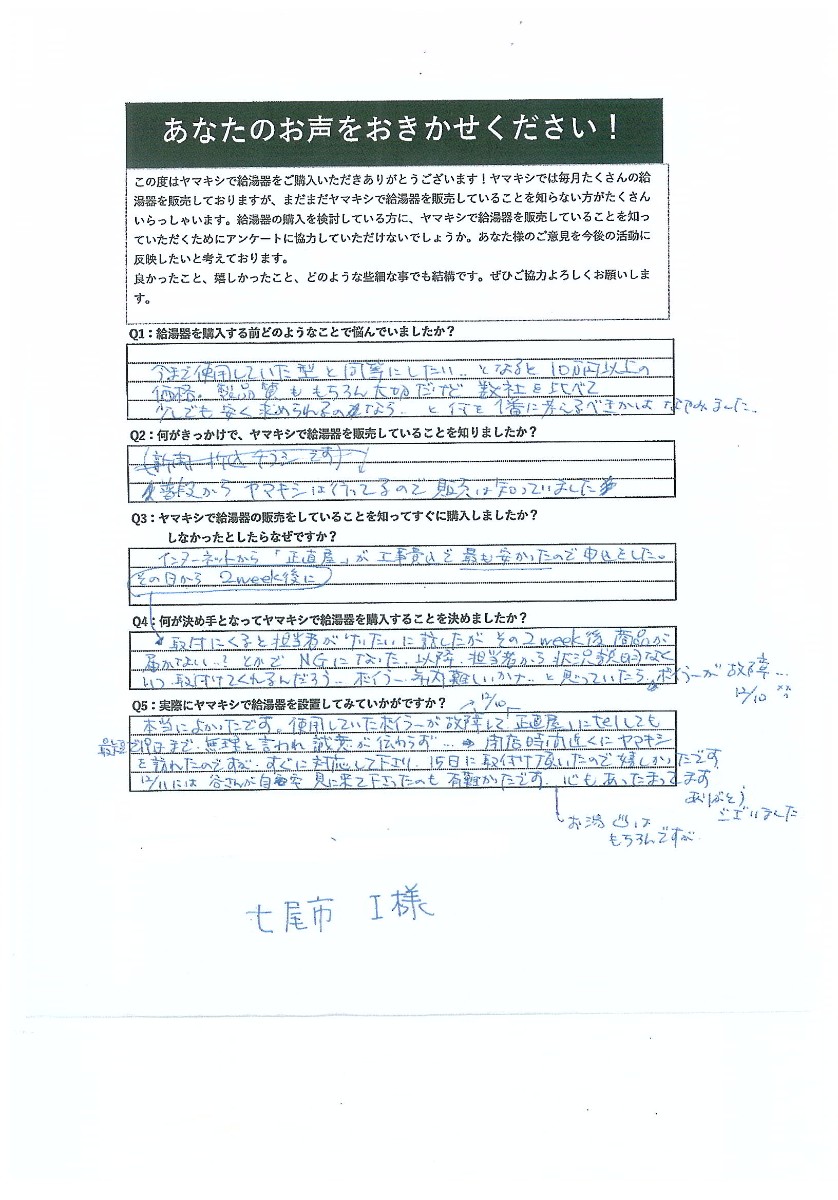 あなたのお声をおきかせください！
この度はヤマキシで給湯器をご購入いただきありがとうございます！ヤマキシでは毎月たくさんの給
湯器を販売しておりますが、まだまだヤマキシで給湯器を販売していることを知らない方がたくさん
いらっしゃいます。給湯器の購入を検討している方に、ヤマキシで給湯器を販売していることを知っ
ていただくためにアンケートに協力していただけないでしょうか。あなた様のご意見を今後の活動に
反映したいと考えております。
良かったこと、嬉しかったこと、どのような些細な事でも結構です。ぜひご協力よろしくお願いしま
す。
Q1：給湯器を購入する前どのようなことで悩んでいましたか？
今まで使用していた型と同等にしたい.. となると 10万円以上の
価格。製品質ももちろん大切だけど 数社を比べて
少しでも安く求められるのなら.. と何を1番に考えるべきかは なやみました.
Q2：何がきっかけで、ヤマキシで給湯器を販売していることを知りましたか？
(新聞 折込 チラシ です)
普段から ヤマキシは行ってるので 販売は知っていました
Q3：ヤマキシで給湯器の販売をしていることを知ってすぐに購入しましたか？
しなかったとしたらなぜですか？
インターネットから「正直屋」が工事費込で 最も安かったので 申込をした。
その日から 2week後に
Q4：何が決め手となってヤマキシで給湯器を購入することを決めましたか？
取付にくると担当者が に話したが その2week後 商品が
届かない..? とかで NGになった. 以降 担当者から 状況説明なく
いつ取付けてくれるんだろう.. ボイラー 年内難しいかナ.. と思っていたら ボイラーが故障...
12/10
Q5：実際にヤマキシで給湯器を設置してみていかがですか？
12/10
本当によかったです。使用していたボイラーが故障して「正直屋」にtelしても
まで 無理と言われ 誠意が伝わらず... → 閉店時間近くにヤマキシ
を訪れたのですが. すぐに対応して下さり. 15日に取付けて頂いたので嬉しかったです
12/11には 谷さんが自宅 見に来て下さったのも 有難かったです. 心もあったまってます
お湯はもちろんですが
ありがとう
ございました
七尾市 I様